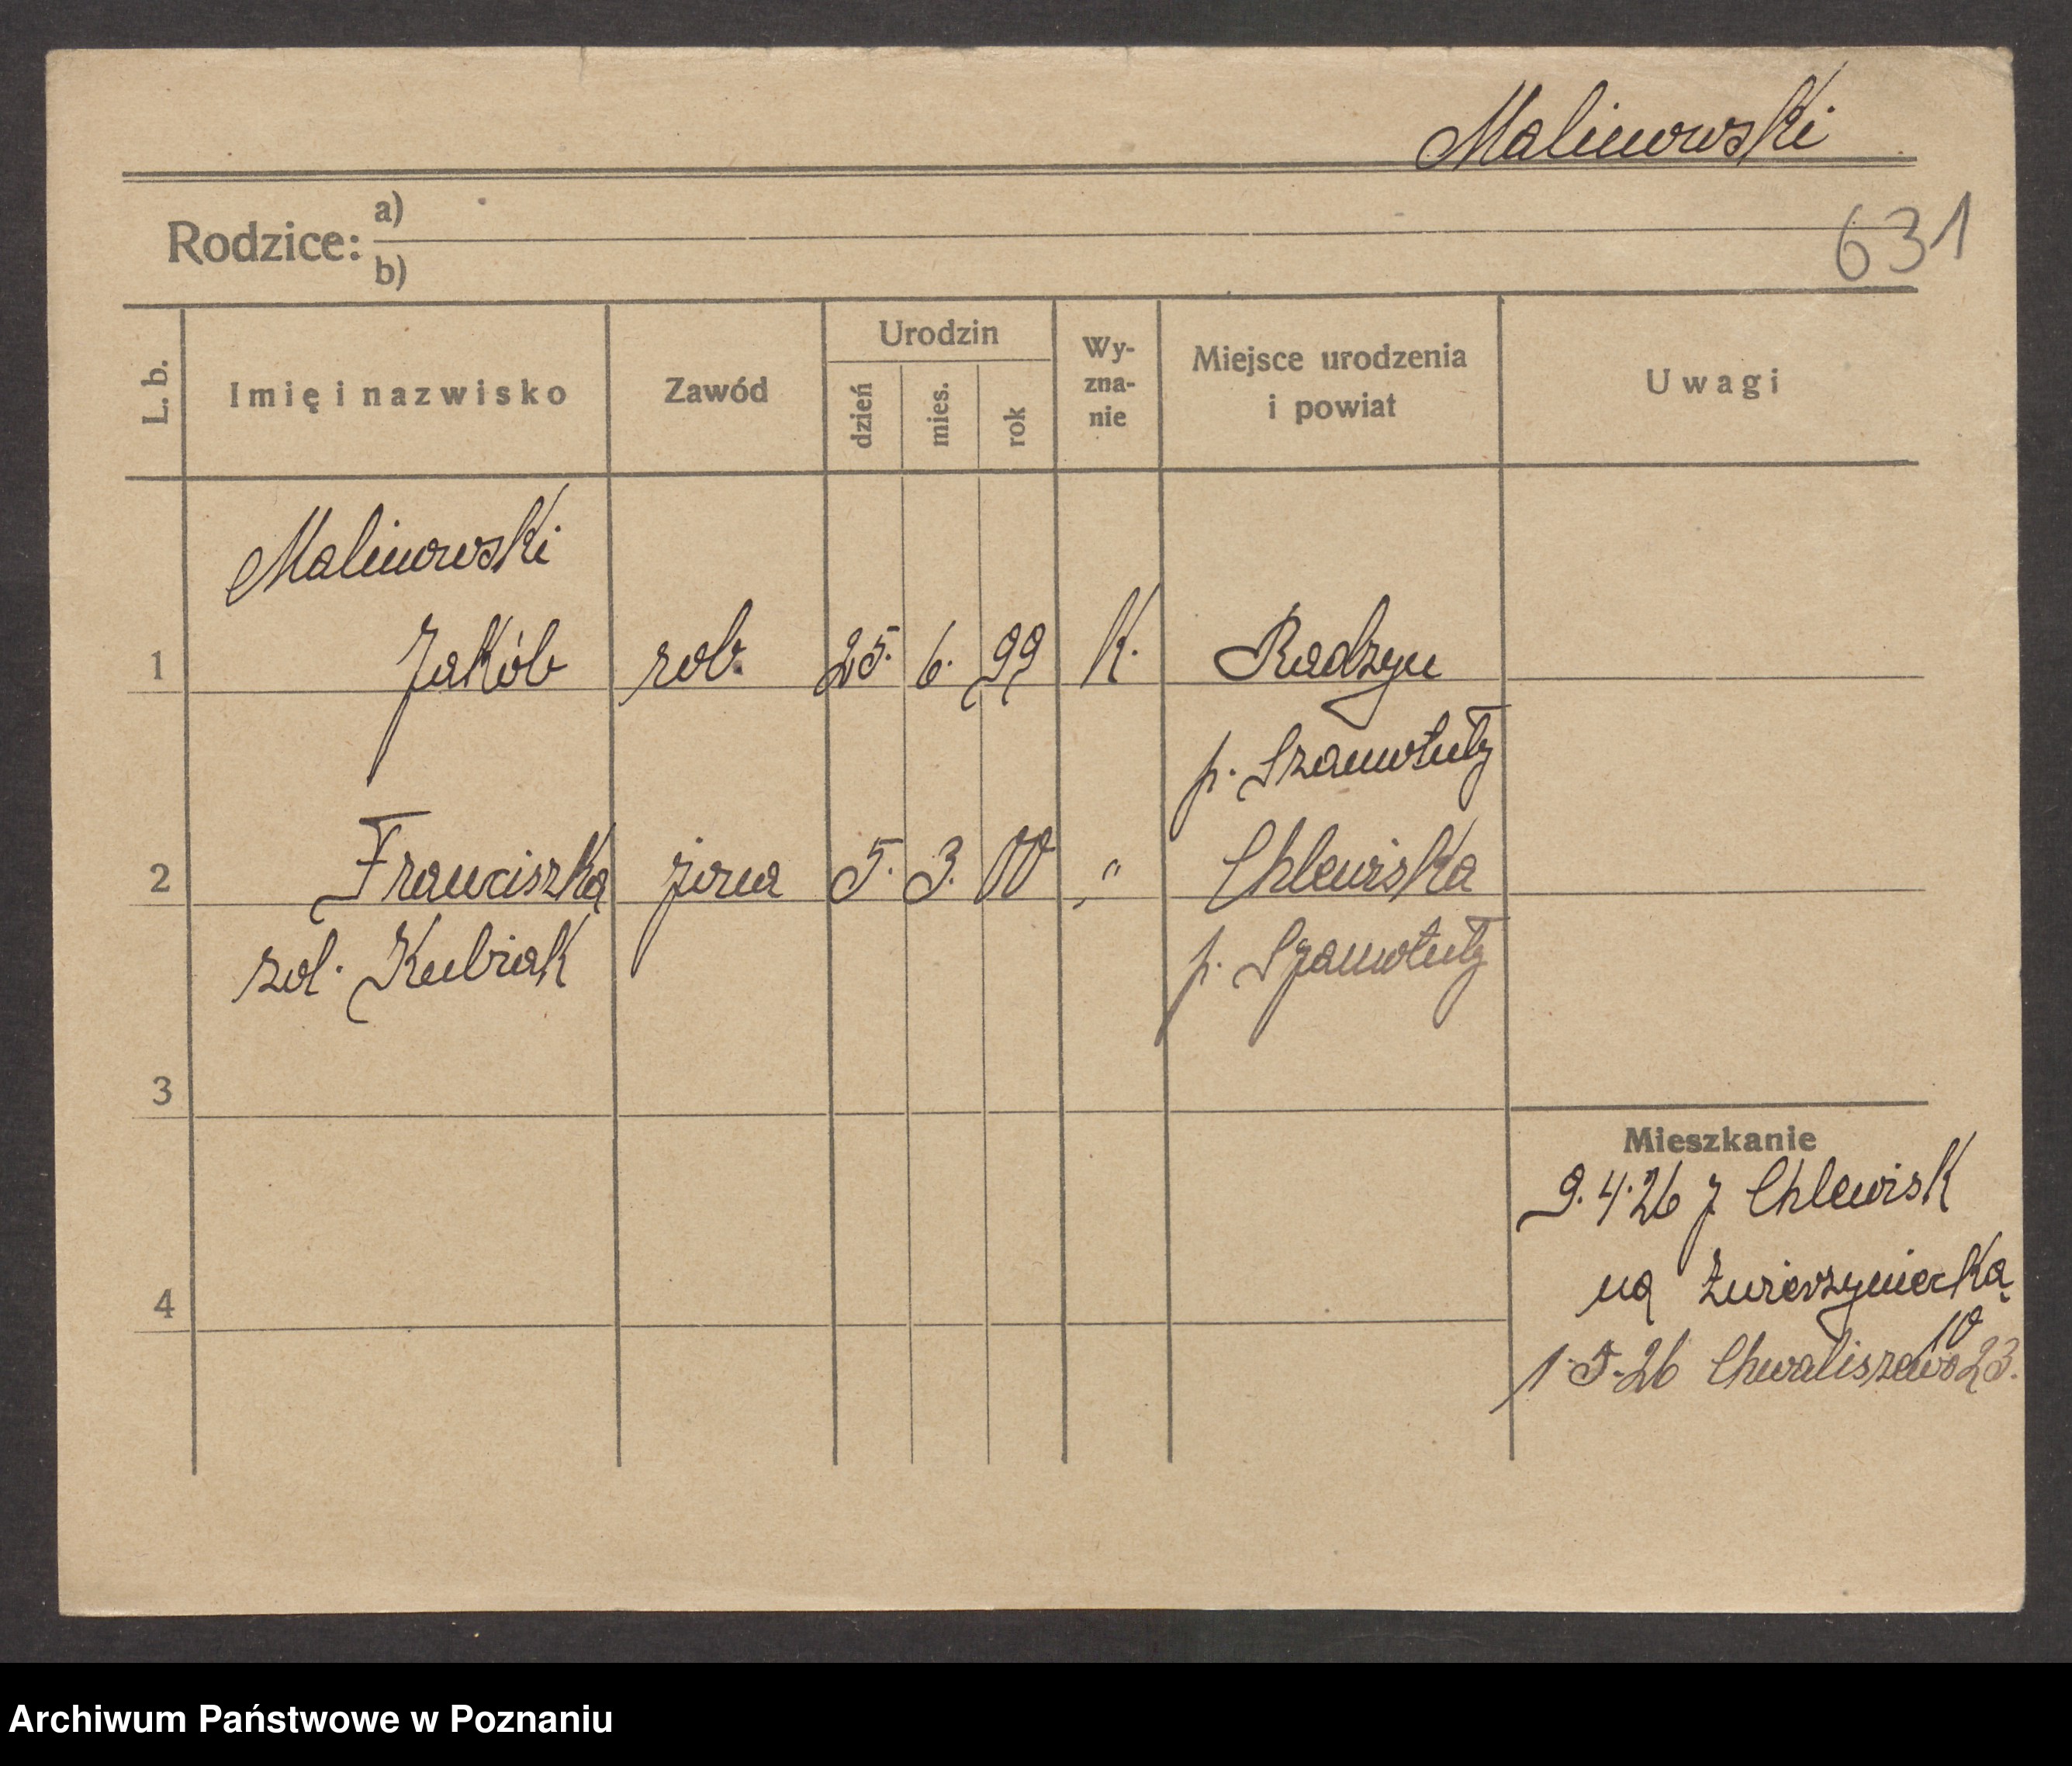 Malinowski
631
Rodzice: a)
b)
L. b. Imię i nazwisko Zawód Urodzin dzień mies. rok Wy-zna-nie Miejsce urodzenia i powiat Uwagi
Malinowski
1 Jakób rob. 25. 6. 99 K. Radzyn
p. Szamotuły
2 Franciszka żona 5. 3. 00 „ Chlewiska
rol. Kubiak p. Szamotuły
3
Mieszkanie
9.4.26 z Chlewisk
na Zwierzyniecką
4 10
1.5.26 Chwaliszewo 23.
Archiwum Państwowe w Poznaniu